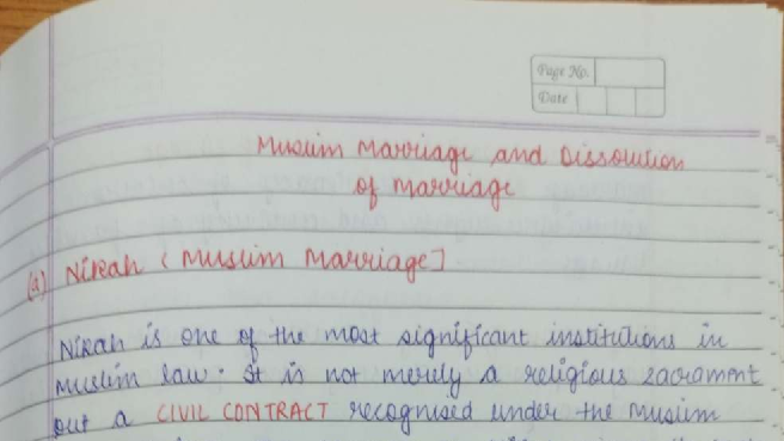 Page No.
Date
Muslim Marriage and Dissolution
of marriage
(a) Nikah (Muslim Marriage]
Nikah is one of the most significant institutions in
Muslim law. It is not merely a religious sacrament
but a CIVIL CONTRACT recognised under the Muslim